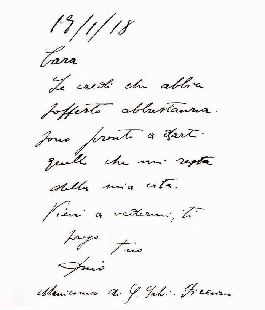 19/1/18
Cara
Se credi che abbia
sofferto abbastanza.
sono pronto a darti
quello che mi resta
della mia vita.
Vieni a vedermi, ti
prego
tuo
Dino
Manicomio di S Salvi - Firenze